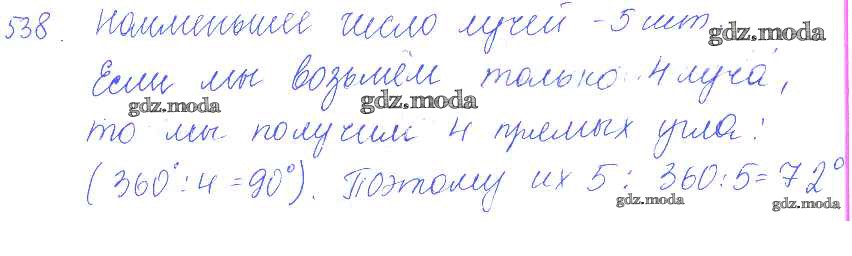 538. Наименьшее число лучей - 5 шт.
gdz.moda
Если мы возьмём только 4 луча,
gdz.moda gdz.moda
то мы получим 4 прямых угла:
(360°:4=90°). Поэтому их 5: 360:5=72°
gdz.moda gdz.moda